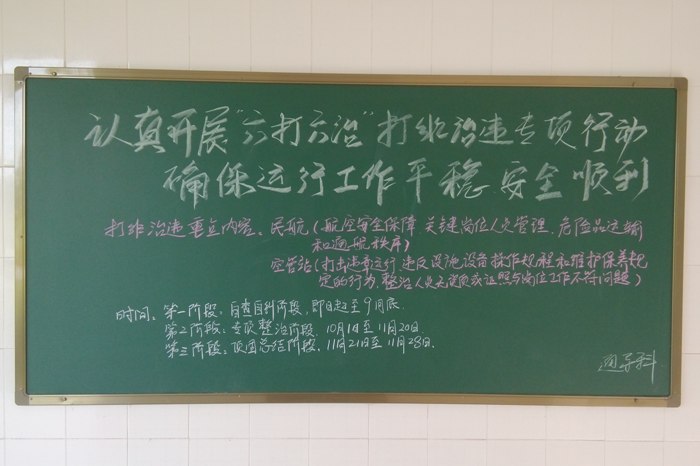 认真开展“六打六治”打非治违专项行动
确保运行工作平稳安全顺利
打非治违重点内容：民航（航空安全保障 关键岗位人员管理、危险品运输
和通航秩序）
空管站（打击违章运行 违反设施设备操作规程和维护保养规
定的行为，整治人员无资质或证照与岗位工作不符问题）
时间：第一阶段：自查自纠阶段，即日起至9月底
第2阶段：专项整治阶段，10月1日至11月20日.
第三阶段：巩固总结阶段，11月21日至11月28日.
通导科